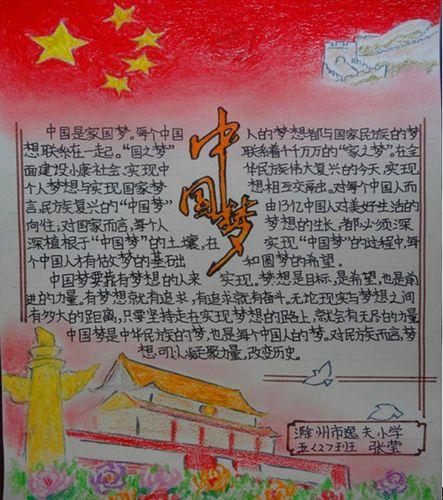 中国梦
中国是家国梦。每个中国人的梦想都与国家民族的梦
想联系在一起。“国之梦”联系着千千万万的“家之梦”。在全
面建设小康社会,实现中华民族伟大复兴的今天,实现中
个人梦想与实现国家梦想相互交融出。对每个中国人而
言,民族复兴的“中国梦”由13亿中国人对美好生活的
向往,对国家而言,每个人梦想的生长,都必须深
深植根于“中国梦”的土壤,在实现“中国梦”的过程中,每
个中国人才有做好梦的基础和圆梦的希望。
中国梦要靠有梦想的人来实现。梦想是目标,是希望,也是前
进的力量。有梦想就有追求,有追求就有奋斗。无论现实与梦想之间
有多大的距离,只要坚持走在实现梦想的路上,就会有无尽的力量
中国梦是中华民族的梦,也是每个中国人的梦。对民族而言,梦
想可以凝聚力量,改变历史。
滁州市逸夫小学
五〈2〉班 张莹